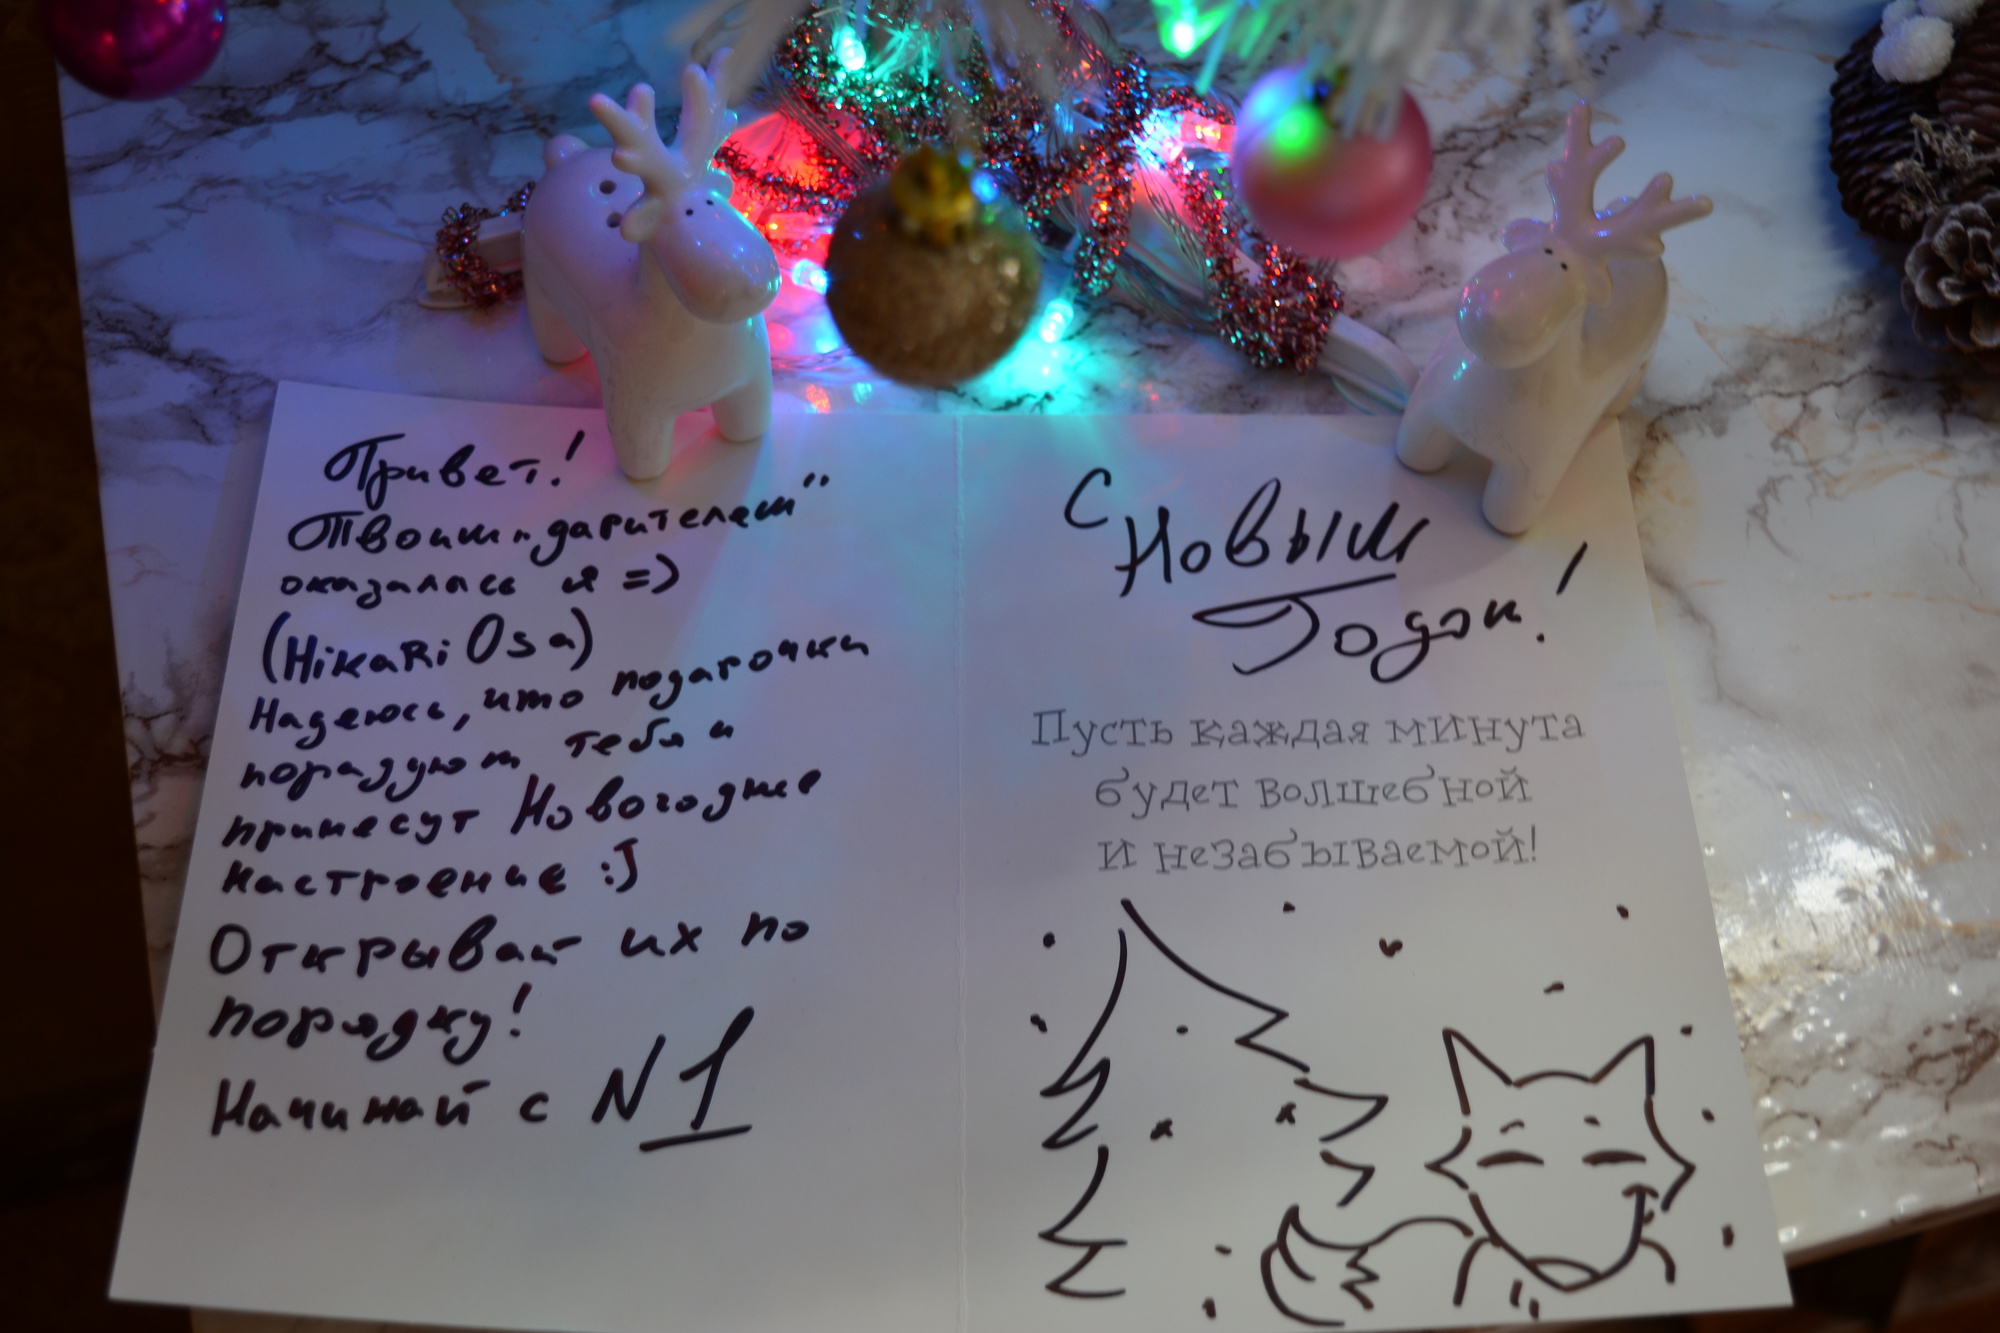 Привет!
Твоим „дарителем"
оказалась я =)
(HikaRi Osa)
Надеюсь, что подарочки
порадуют тебя и
принесут Новогоднее
настроение :J
Открывай их по
порядку!
Начинай с N1
С
Новым
Годом!
Пусть каждая минута
будет волшебной
и незабываемой!